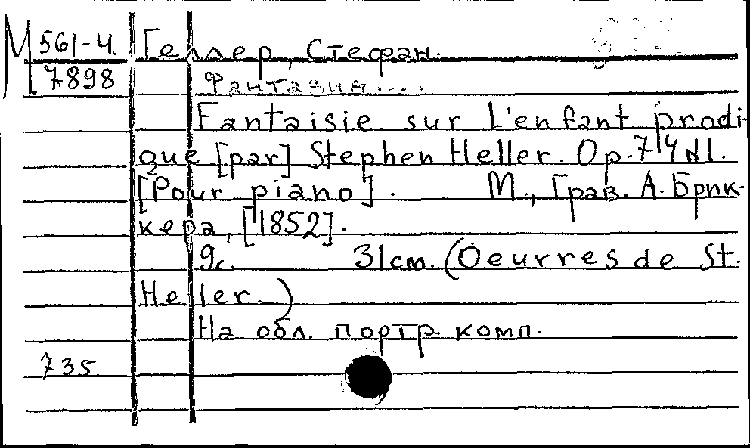 М 561-4 Геллер, Стефан.
7898 Фантазия...
Fantaisie sur L'enfant prodi-
gue [par] Stephen Heller. Op. 74 N1.
[Pour piano]. М., Грав. А. Брик-
кера, [1852].
9с. 31см. (Oeurres de St.
Heller.)
На обл. портр. комп.
735